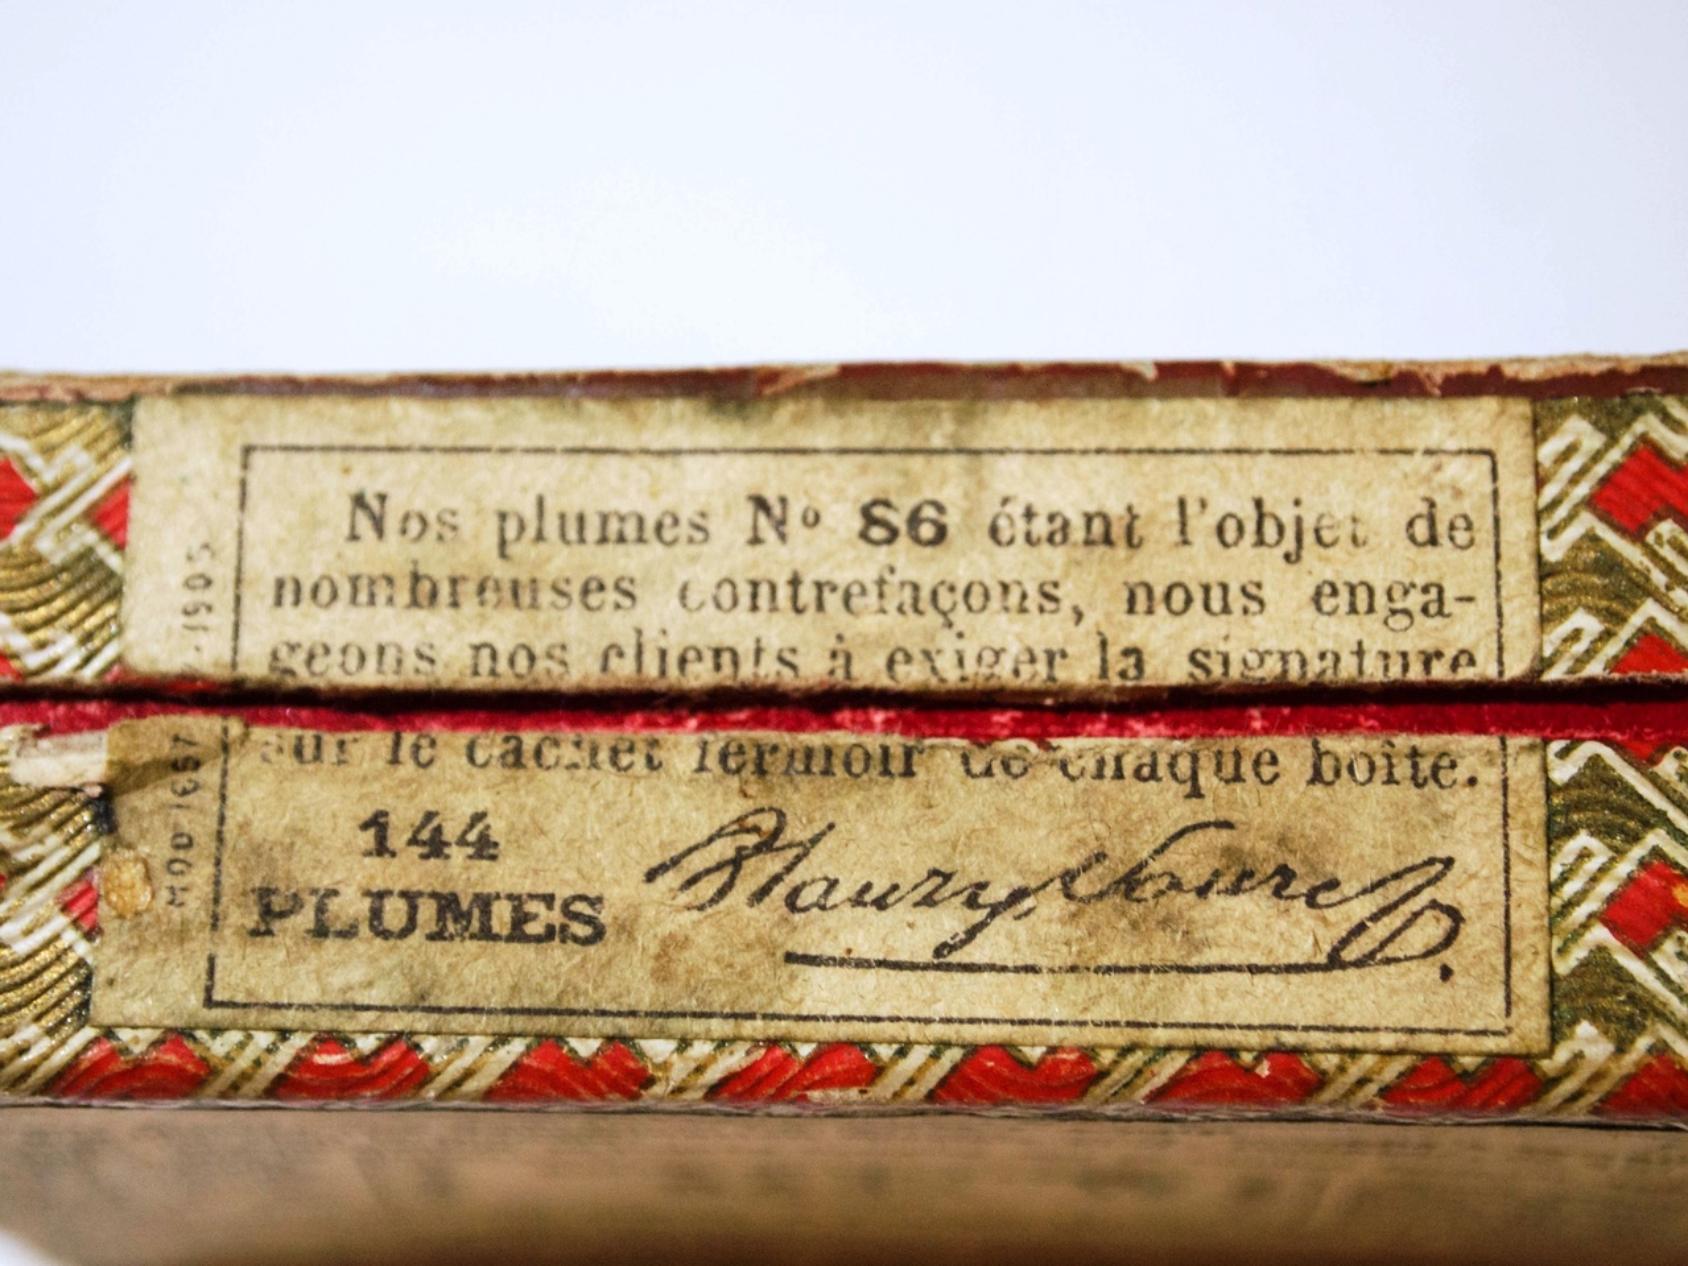 Nos plumes Nº 86 étant l'objet de
nombreuses contrefaçons, nous enga-
geons nos clients à exiger la signature
sur le cachet fermoir de chaque boîte.
144
PLUMES